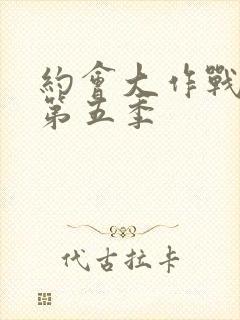 約會大作戰
第五季
代古拉卡